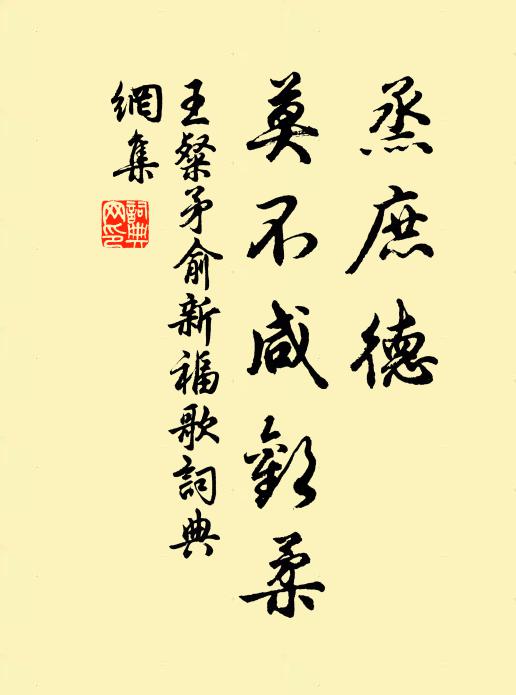 烝庶德
莫不咸歡柔
王粲矛俞新福歌詞典
網集
詞典
网印